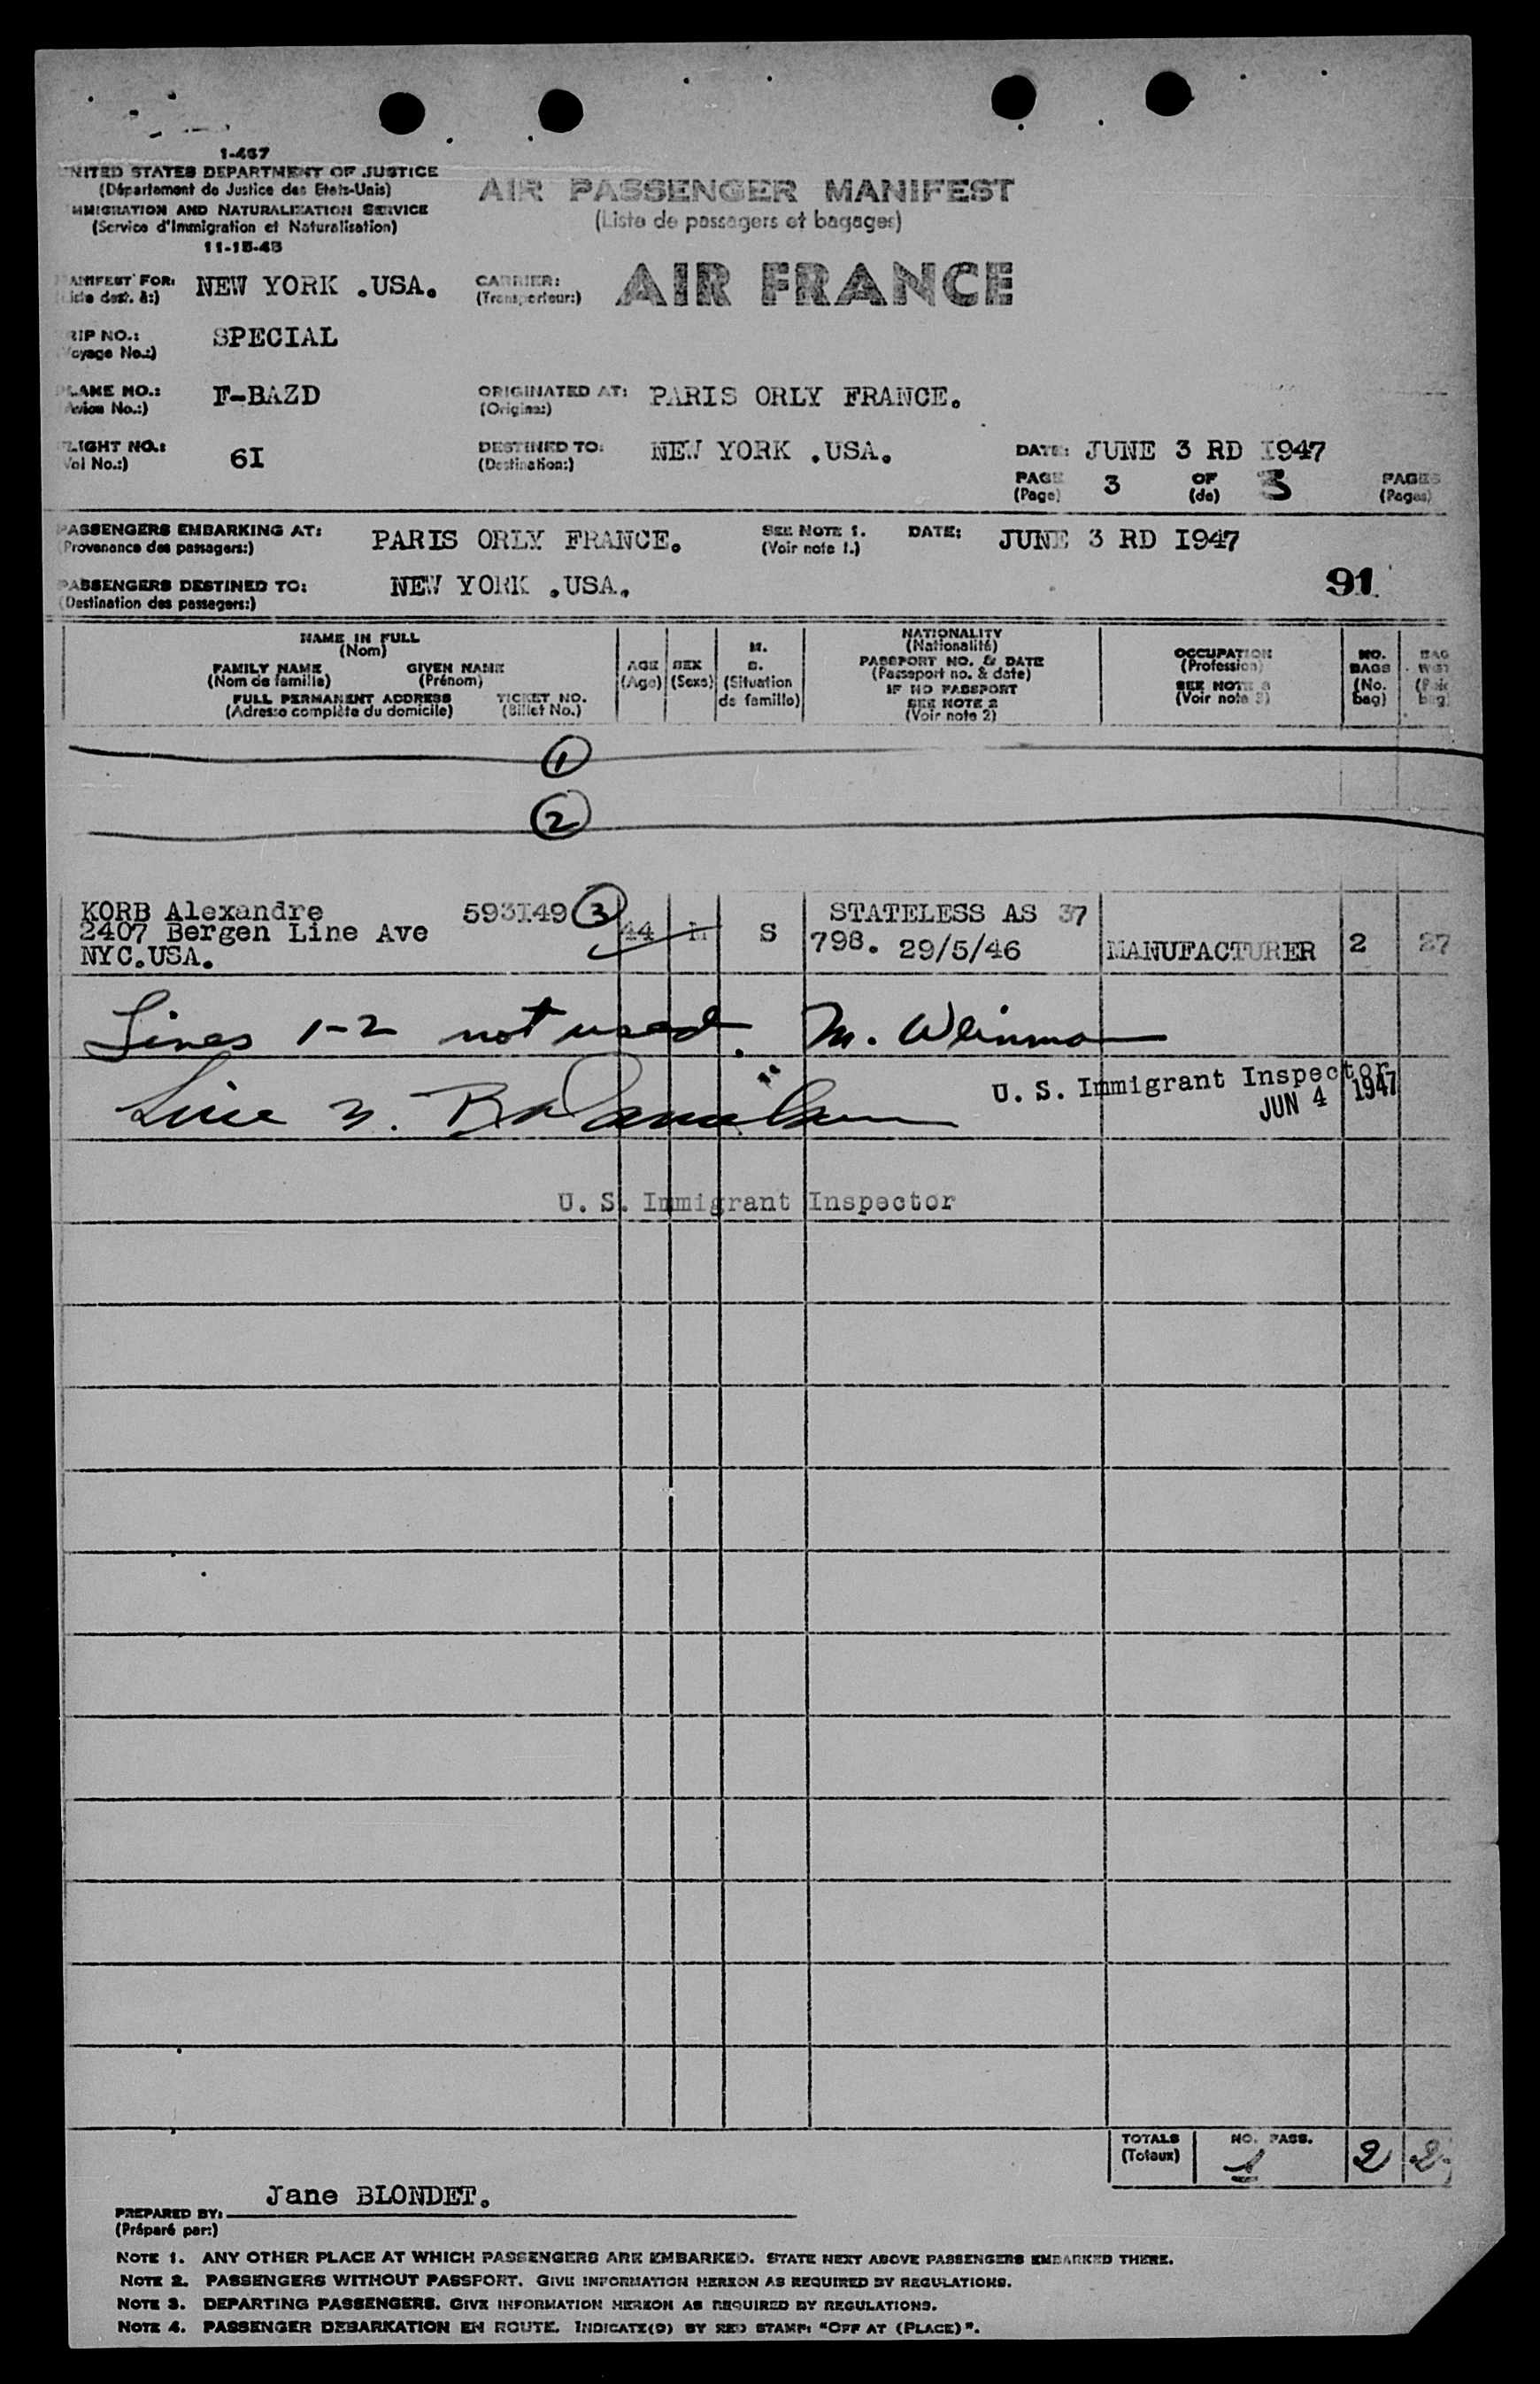 1-467
UNITED STATES DEPARTMENT OF JUSTICE
(Département de Justice des Etats-Unis)
IMMIGRATION AND NATURALIZATION SERVICE
(Service d'Immigration et Naturalisation)
11-15-45
AIR PASSENGER MANIFEST
(Liste de passagers et bagages)
MANIFEST FOR: NEW YORK .USA. CARRIER: AIR FRANCE
(Liste dest. à:) (Transporteur:)
TRIP NO.: SPECIAL
(Voyage No.:)
PLANE NO.: F-BAZD ORIGINATED AT: PARIS ORLY FRANCE.
(Avion No.:) (Origine:)
FLIGHT NO.: 6I DESTINED TO: NEW YORK .USA. DATE: JUNE 3 RD I947
(Vol No.:) (Destination:)
PAGE 3 OF 3 PAGES
(Page) (de) (Pages)
PASSENGERS EMBARKING AT: PARIS ORLY FRANCE. SEE NOTE 1. DATE: JUNE 3 RD I947
(Provenance des passagers:) (Voir note 1.)
PASSENGERS DESTINED TO: NEW YORK .USA. 91
(Destination des passagers:)
NAME IN FULL
(Nom)
FAMILY NAME GIVEN NAME
(Nom de famille) (Prénom)
FULL PERMANENT ADDRESS TICKET NO.
(Adresse complète du domicile) (Billet No.)
AGE
(Age)
SEX
(Sexe)
M.
S.
(Situation
de famille)
NATIONALITY
(Nationalité)
PASSPORT NO. & DATE
(Passeport no. & date)
IF NO PASSPORT
SEE NOTE 2
(Voir note 2)
OCCUPATION
(Profession)
SEE NOTE 3
(Voir note 3)
NO.
BAGS
(No.
bag)
BAG
1
2
KORB Alexandre 593I49 3 44 M S STATELESS AS 37
2407 Bergen Line Ave 798. 29/5/46 MANUFACTURER 2 27
NYC.USA.
Lines 1-2 not used. M. Weinman
U. S. Immigrant Inspector
JUN 4 1947
Line 3.
U. S. Immigrant Inspector
TOTALS NO. PASS. 1 2
(Totaux)
PREPARED BY: Jane BLONDET.
(Préparé par:)
NOTE 1. ANY OTHER PLACE AT WHICH PASSENGERS ARE EMBARKED. STATE NEXT ABOVE PASSENGERS EMBARKED THERE.
NOTE 2. PASSENGERS WITHOUT PASSPORT. GIVE INFORMATION HEREON AS REQUIRED BY REGULATIONS.
NOTE 3. DEPARTING PASSENGERS. GIVE INFORMATION HEREON AS REQUIRED BY REGULATIONS.
NOTE 4. PASSENGER DEBARKATION EN ROUTE. INDICATE(D) BY RED STAMP: "OFF AT (PLACE)".